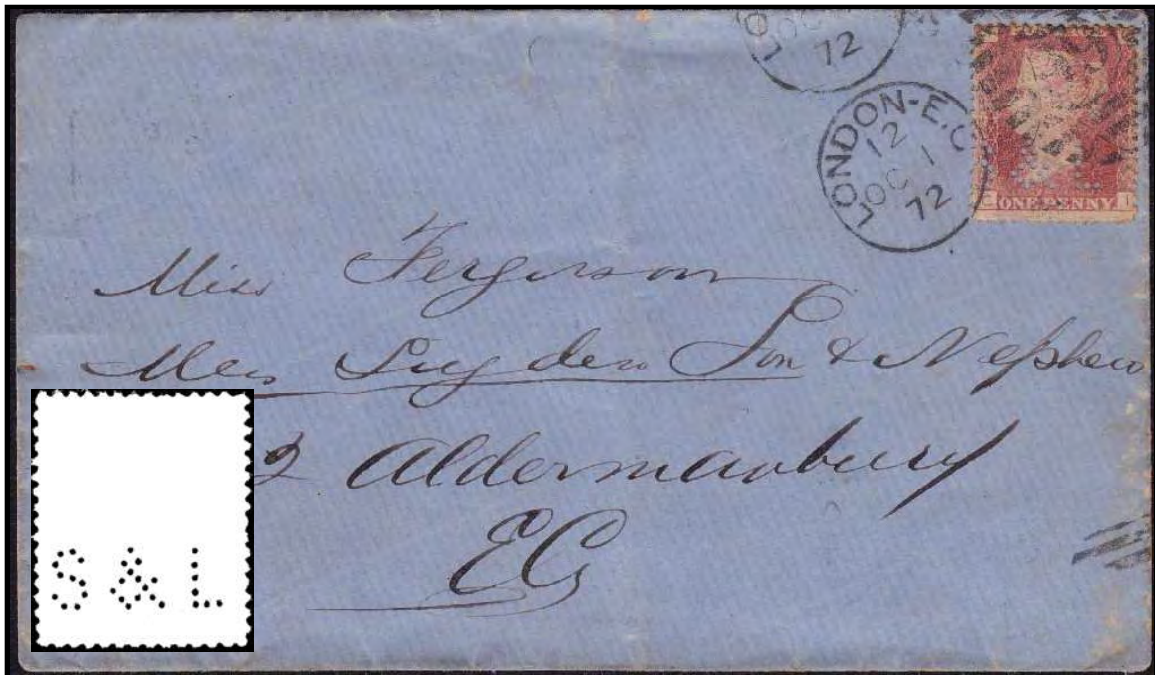 LO
OC
72
LONDON-E.C
12
OC 1
72
ONE PENNY
Miss Ferguson
Son & Nephew
2 Aldermanbury
EC
S & L